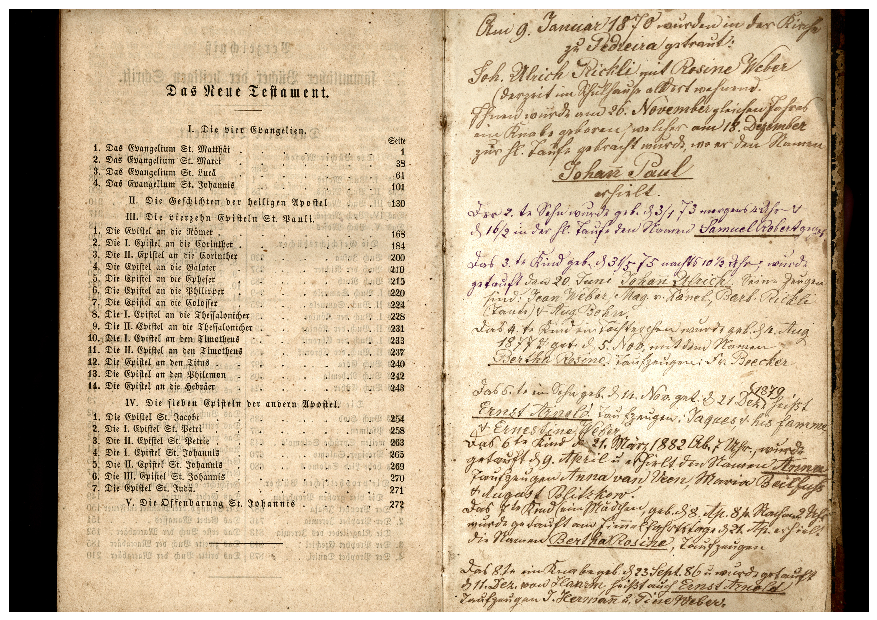 Das Neue Testament.
I. Die vier Evangelien.
Seite
1. Das Evangelium St. Matthäi 1
2. Das Evangelium St. Marci 38
3. Das Evangelium St. Lucä 61
4. Das Evangelium St. Johannis 101
II. Die Geschichten der heiligen Apostel 130
III. Die vierzehn Episteln St. Pauli.
1. Die Epistel an die Römer 168
2. Die I. Epistel an die Corinther 184
3. Die II. Epistel an die Corinther 200
4. Die Epistel an die Galater 210
5. Die Epistel an die Epheser 215
6. Die Epistel an die Philipper 220
7. Die Epistel an die Colosser 224
8. Die I. Epistel an die Thessalonicher 228
9. Die II. Epistel an die Thessalonicher 231
10. Die I. Epistel an den Timotheus 233
11. Die II. Epistel an den Timotheus 237
12. Die Epistel an den Titus 240
13. Die Epistel an den Philemon 242
14. Die Epistel an die Hebräer 243
IV. Die sieben Episteln der andern Apostel.
1. Die Epistel St. Jacobi 254
2. Die I. Epistel St. Petri 258
3. Die II. Epistel St. Petrie 263
4. Die I. Epistel St. Johannis 265
5. Die II. Epistel St. Johannis 269
6. Die III. Epistel St. Johannis 270
7. Die Epistel St. Judä 271
V. Die Offenbarung St. Johannis 272
Am 9. Januar 1870 wurden in der Kirche
zu Pedreira getraut:
Joh. Ulrich Rickli mit Rosine Weber
derzeit im Schulhause allort wohnend.
Ihnen wurde am 26. November gleichen Jahres
ein Knabe geboren, welcher am 18. Dezember
zur hl. Taufe gebracht wurde, wo er den Namen
Johan Paul
erhielt.
Der 2. te Sohn wurde geb. d 3/1 73 morgens 4 Uhr
d 16/2 in der hl. Taufe den Namen Samuel Robert
Das 3. te Kind geb. d 31/5 75 nachts 10 1/2 Uhr, wurde
getauft den 20. Juni Johan Ulrich. Seine Zeugen
sind: Jean Weber, Mag. v. Kanel, Bert. Rickli
(Tante) & Aug Bohn.
Das 4. te Kind ein Töchterchen wurde geb. d 4. Aug
1877 & get. d 5. Nov. mit dem Namen
Bertha Rosine. Taufzeugen: Fr. Broecker
Das 5. te ein Sohn geb. d 14. Nov. get. d 21 Dez. 1879 heißt
Ernst Arnold. Taufzeugen: Jaques
& Ernestine Weber
Das 6 te Kind d 21. März 1882 Ab. 7 Uhr, wurde
getauft d 9. April u. erhielt den Namen Anna
Taufzeugen Anna van Veen Maria Beilfuss
& August Blitzkow.
Das 7te Kind ein Mädchen, geb. d 8. Ap. 84
wurde getauft am Himmelfahrtstage d 24. Ap. erhielt
die Namen Bertha Rosine, Taufzeugen
Das 8te ein Knabe geb. d 23 Sept. 86 u wurde getauft
d 11. Dez. von heißt auch Ernst Arnold
Taufzeugen J. Herman u. Tine Weber.